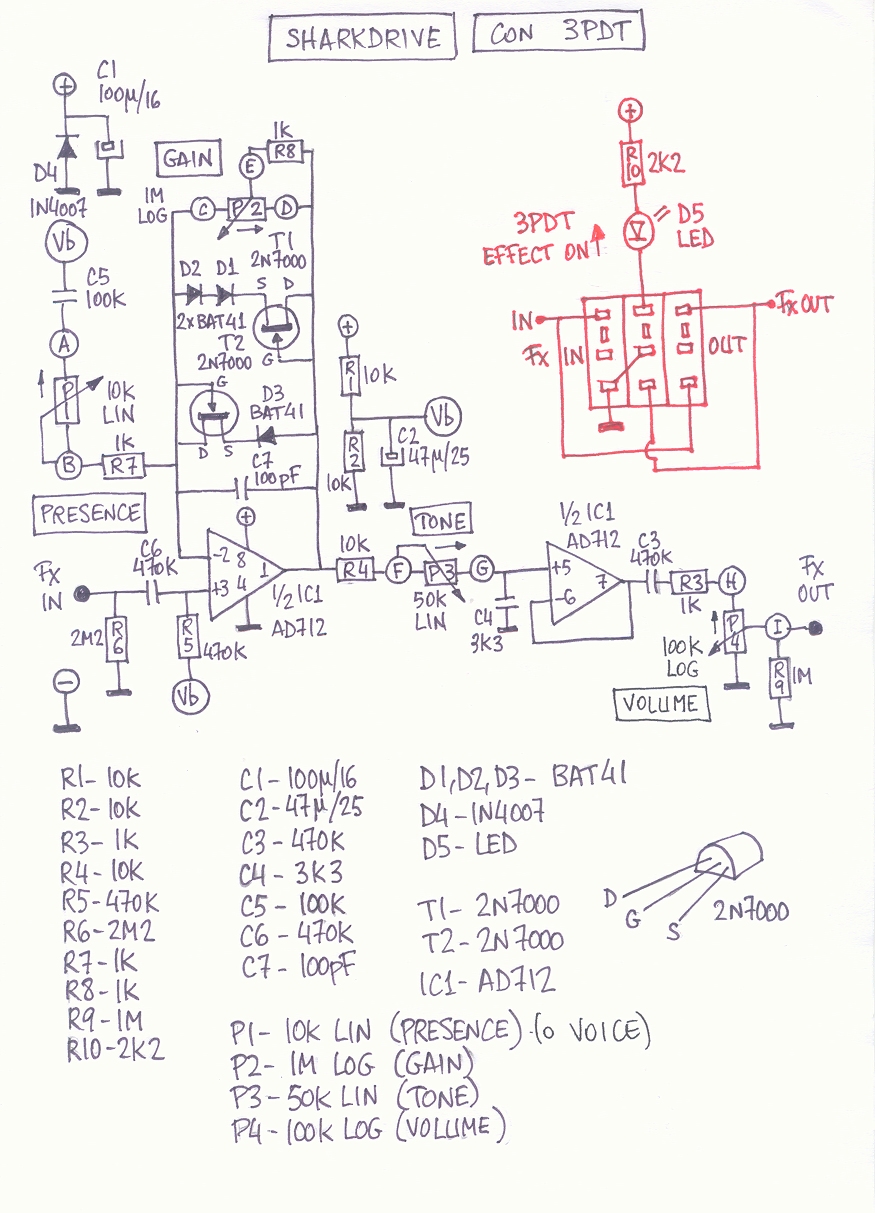 SHARKDRIVE CON 3PDT
+
C1
100µ/16
D4
1N4007
Vb
C5
100K
A
P1
10K
LIN
B
1K
R7
PRESENCE
GAIN
1K
R8
E
1M
LOG
C
P2
D
T1
2N7000
D2 D1
S D
2xBAT41
T2
2N7000
G
G
D3
BAT41
D S
C7
100pF
+
R1
10K
Vb
R2
10K
C2
47µ/25
+
-2 8
1
+3 4
1/2 IC1
AD712
FX
IN
C6
470K
2M2
R6
R5
470K
Vb
−
TONE
10K
R4
F
P3
G
50K
LIN
C4
3K3
1/2 IC1
AD712
+5
7
-6
C3
470K
R3
1K
H
P4
100K
LOG
I
FX
OUT
R9
1M
VOLUME
+
R10
2K2
D5
LED
3PDT
EFFECT ON
IN
FX IN
OUT
FX OUT
R1- 10K
R2- 10K
R3- 1K
R4- 10K
R5- 470K
R6- 2M2
R7- 1K
R8- 1K
R9- 1M
R10- 2K2
C1- 100µ/16
C2- 47µ/25
C3- 470K
C4- 3K3
C5- 100K
C6- 470K
C7- 100pF
D1,D2,D3- BAT41
D4- 1N4007
D5- LED
T1- 2N7000
T2- 2N7000
IC1- AD712
D
G
S
2N7000
P1- 10K LIN (PRESENCE) (o VOICE)
P2- 1M LOG (GAIN)
P3- 50K LIN (TONE)
P4- 100K LOG (VOLUME)